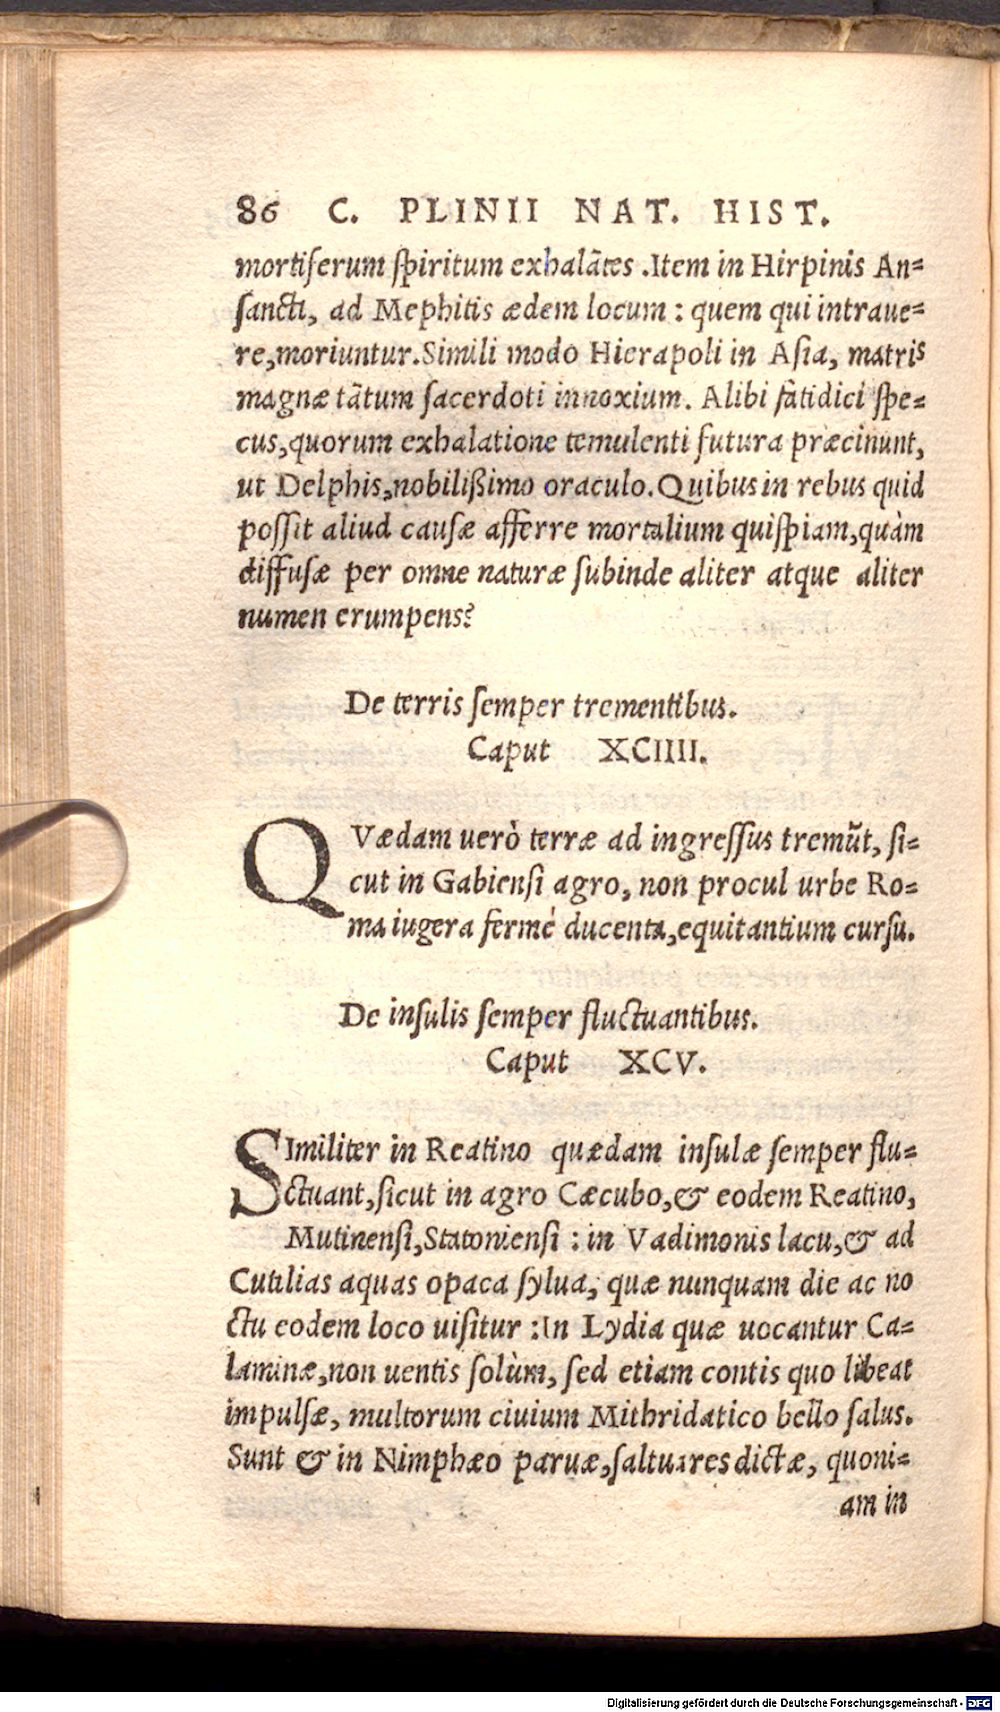 86 C. PLINII NAT. HIST.
mortiferum ſpiritum exhalãtes .Item in Hirpinis An=
ſancti, ad Mephitis ædem locum : quem qui intraue=
re,moriuntur.Simili modo Hierapoli in Aſia, matris
magnæ tãtum ſacerdoti innoxium. Alibi fatidici ſpe=
cus,quorum exhalatione temulenti futura præcinunt,
ut Delphis,nobilißimo oraculo.Quibus in rebus quid
poſſit aliud cauſæ afferre mortalium quiſpiam,quàm
diffuſæ per omne naturæ ſubinde aliter atque aliter
numen erumpens?
De terris ſemper trementibus.
Caput XCIIII.
QVædam uerò terræ ad ingreſſus tremũt, ſi=
cut in Gabienſi agro, non procul urbe Ro=
ma iugera fermè ducenta,equitantium curſu.
De inſulis ſemper fluctuantibus.
Caput XCV.
SImiliter in Reatino quædam inſulæ ſemper flu=
ctuant,ſicut in agro Cæcubo,& eodem Reatino,
Mutinenſi,Statonienſi : in Vadimonis lacu,& ad
Cutilias aquas opaca ſylua, quæ nunquam die ac no
ctu eodem loco uiſitur :In Lydia quæ uocantur Ca=
laminæ,non uentis ſolùm, ſed etiam contis quo libeat
impulſæ, multorum ciuium Mithridatico bello ſalus.
Sunt & in Nimphæo paruæ,ſaltuares dictæ, quoni=
am in
Digitalisierung gefördert durch die Deutsche Forschungsgemeinschaft - DFG